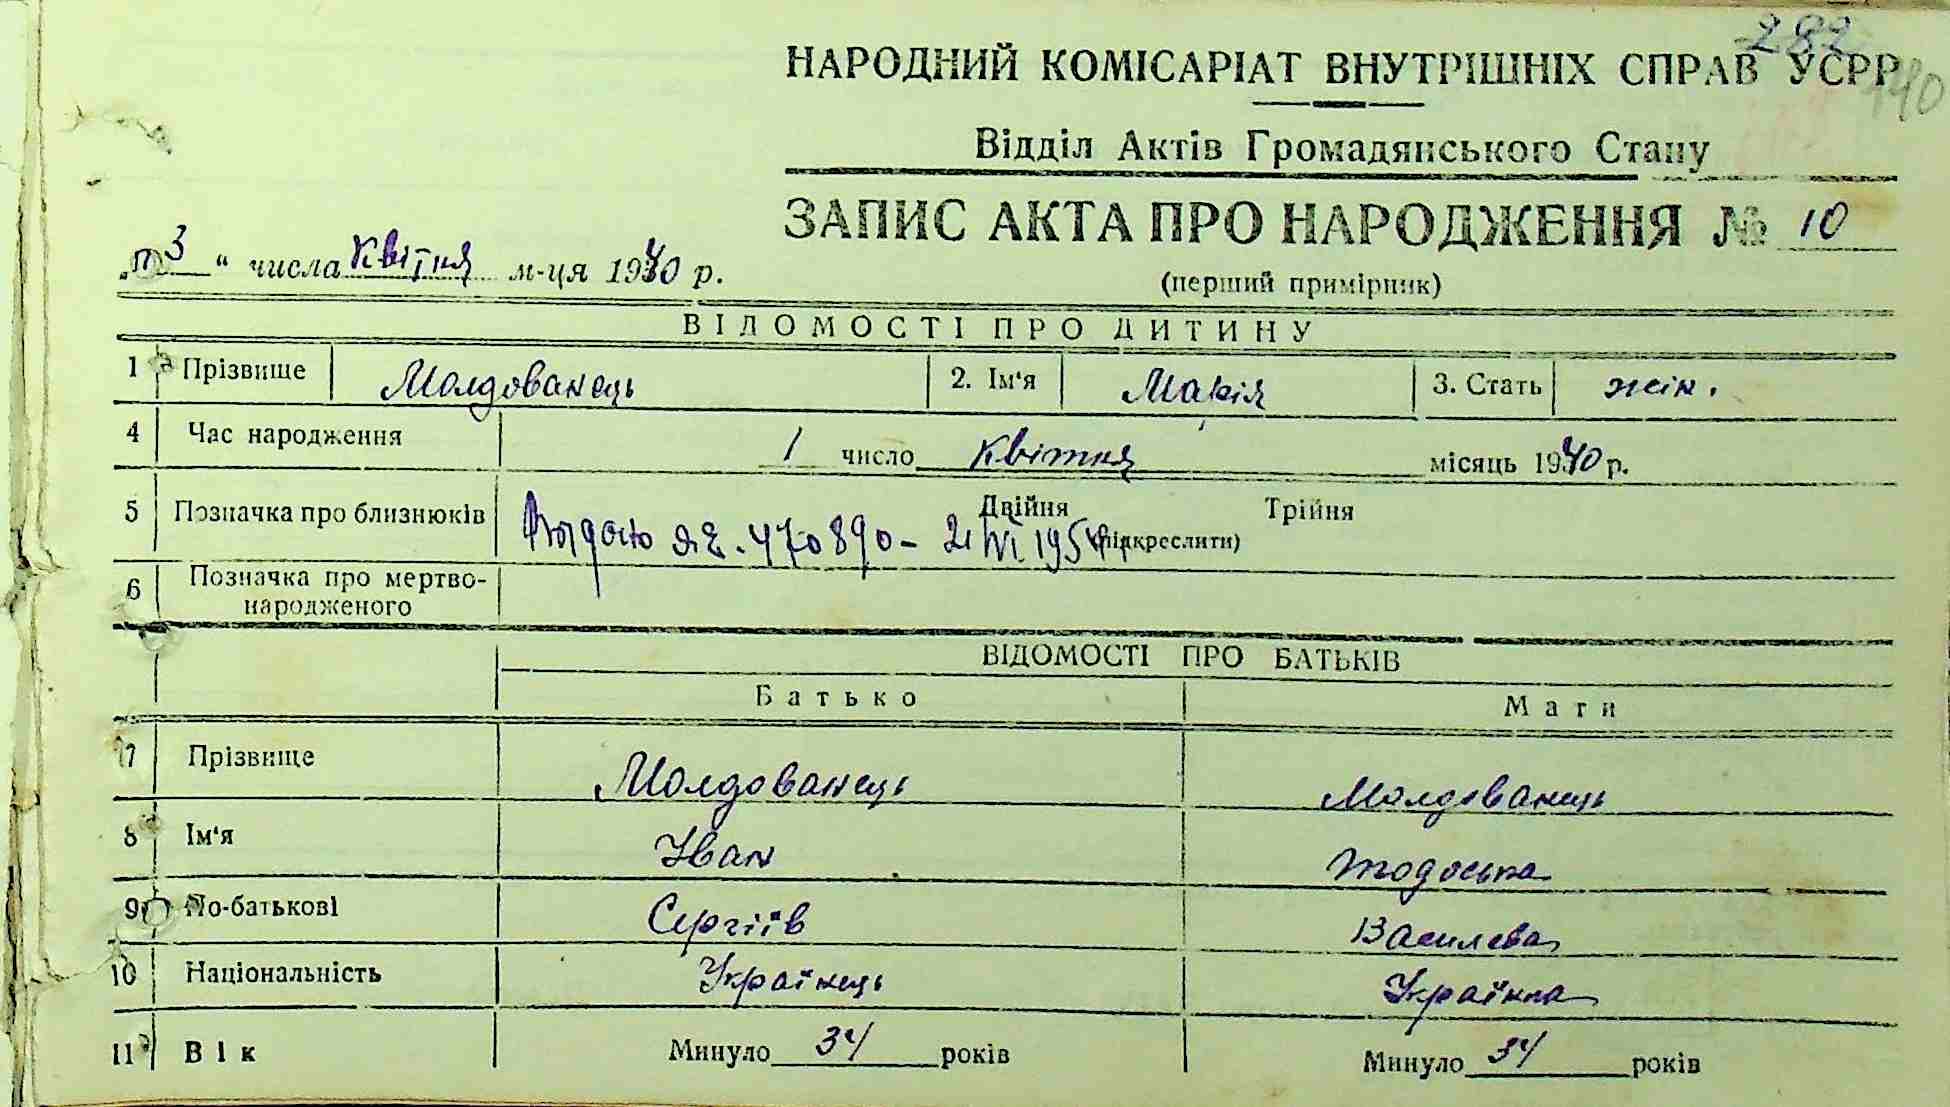 282
НАРОДНИЙ КОМІСАРІАТ ВНУТРІШНІХ СПРАВ УСРР
140
Відділ Актів Громадянського Стану
ЗАПИС АКТА ПРО НАРОДЖЕННЯ № 10
„ 3 “ числа квітня м-ця 1940 р.
(перший примірник)
ВІДОМОСТІ ПРО ДИТИНУ
1 Прізвище Молдованець 2. Ім'я Марія 3. Стать жін.
4 Час народження 1 число квітня місяць 1940 р.
5 Позначка про близнюків Двійня Трійня
(підкреслити)
470890 - 2
6 Позначка про мертво-
народженого
ВІДОМОСТІ ПРО БАТЬКІВ
Батько Мати
7 Прізвище Молдованець Молдованець
8 Ім'я Іван Тодоська
9 По-батькові Сергіїв Василева
10 Національність Українець Українка
11 Вік Минуло 34 років Минуло 34 років